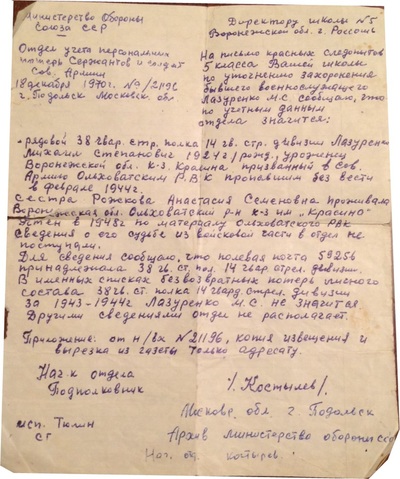 Министерство Обороны
Союза ССР
Отдел учета персональных
потерь сержантов и солдат
Сов. Армии
18 декабря 1970г. №9/21196
г. Подольск Московск. обл.
Директору школы №5
Воронежской обл. г. Россошь
На письмо красных следопытов
5 класса Вашей школы
по уточнению захоронения
бывшего военнослужащего
Лазуренко М.С. сообщаю, что
по учетным данным
отдела значится:
рядовой 38 гвар. стр. полка 14 гв. стр. дивизии Лазуренко
Михаил Степанович 1924 г/рожд., уроженец
Воронежской обл. к-з. Красина, призванный в Сов.
Армию Ольховатским Р.В.К пропавшим без вести
в феврале 1944г.
сестра Рожкова Анастасия Семеновна проживала
Воронежская обл. Ольховатский р-н к-з им "Красина"
Учтен в 1948г. по материалу Ольховатского РВК
сведений о его судьбе из войсковой части в отдел не
поступали.
Для сведения сообщаю, что полевая почта 59256
принадлежала 38 гв. ст. пол. 14 гвар стрел. дивизии.
В именных списках безвозвратных потерь личного
состава 38 гв. ст. полка 14 гвард. стрел. дивизии
за 1943-1944г. Лазуренко М.С. не значится
Другими сведениями отдел не располагает.
Приложение: от н/вх №21196, копия извещения и
вырезка из газеты только адресату.
Нач-к отдела
Подполковник
/. Костылев/.
исп. Тюлин
СГ
Москов. обл. г. Подольск
Архив Министерство обороны ССР
Нач. от. костырев.